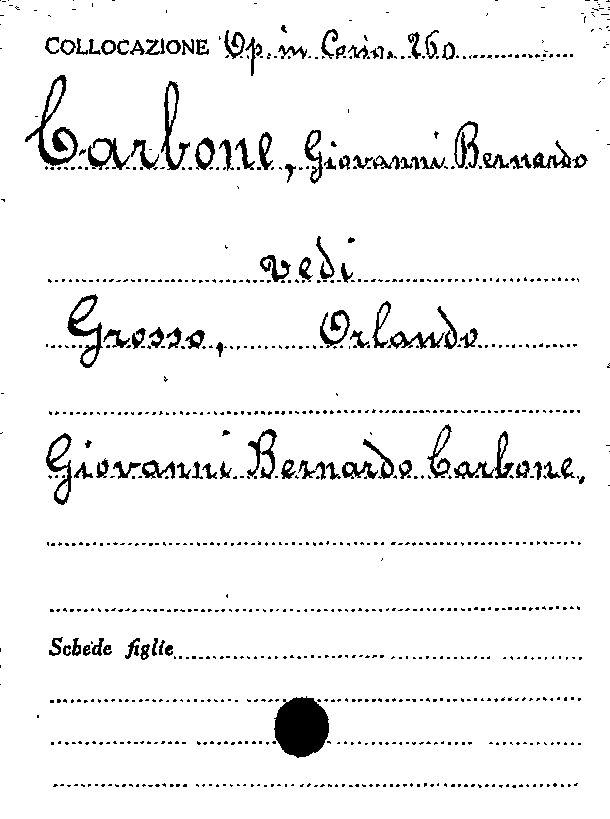 COLLOCAZIONE Op. in Corso. 260
Carbone, Giovanni Bernardo
vedi
Grosso, Orlando
Giovanni Bernardo Carbone,
Schede figlie